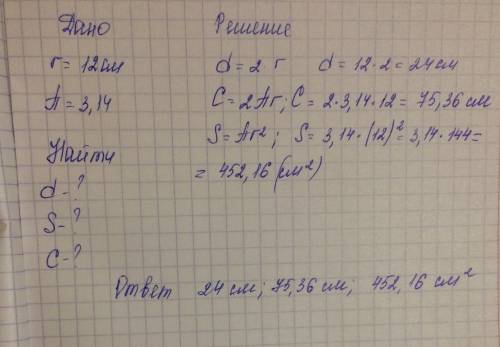 Дано
r = 12 см
A = 3,14
Найти
d - ?
S - ?
C - ?
Решение
d = 2 r d = 12 · 2 = 24 см
C = 2Ar; C = 2 · 3,14 · 12 = 75,36 см
S = Ar²; S = 3,14 · (12)² = 3,14 · 144 =
= 452,16 (см²)
Ответ 24 см; 75,36 см; 452,16 см²